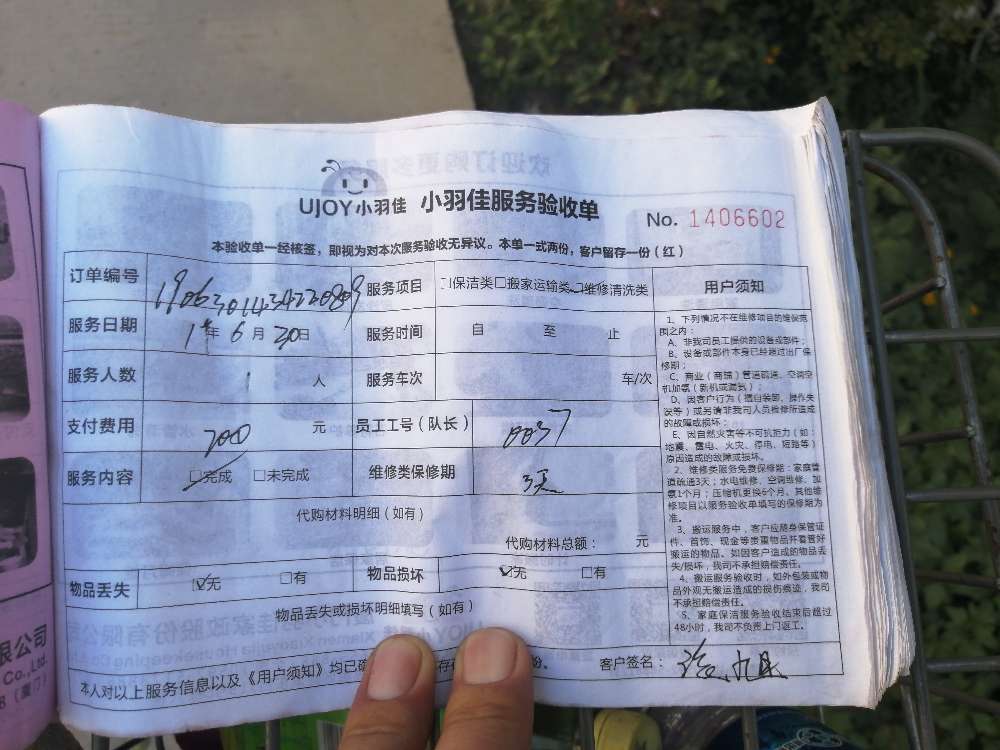 UJOY小羽佳 小羽佳服务验收单
No. 1406602
本验收单一经核签，即视为对本次服务验收无异议。本单一式两份，客户留存一份（红）
订单编号 1906301434220809 服务项目 □保洁类□搬家运输类□维修清洗类 用户须知
服务日期 19年 6月 30日 服务时间 自 至 止
服务人数 1 人 服务车次 车/次
支付费用 200 元 员工工号（队长） 0037
服务内容 □完成 □未完成 维修类保修期 3天
代购材料明细（如有）
代购材料总额： 元
物品丢失 ☑无 □有 物品损坏 ☑无 □有
物品丢失或损坏明细填写（如有）
本人对以上服务信息以及《用户须知》均已确 份。 客户签名：
1、下列情况不在维修项目的维保范
围之内：
A、非我司员工提供的设备或部件；
B、设备或部件本身已经超过出厂保
修期；
C、商业（商铺）管道疏通、空调空
机加氨（新机或漏氨）；
D、因客户行为（擅自装卸、操作失
误等）或另请非我司人员维修所造成
的故障或损坏；
E、因自然灾害等不可抗拒力（如：
地震、雷电、火灾、停电、短路等）
原因造成的故障或损坏。
2、维修类服务免费保修期：家庭管
道疏通3天；水电维修、空调维修、加
氨1个月；压缩机更换6个月，其他维
修项目以服务验收单填写的保修期为
准。
3、搬运服务中，客户应随身保管证
件、首饰、现金等贵重物品并看管好
搬运的物品。如因客户造成的物品丢
失/损坏，我司不承担赔偿责任。
4、搬运服务验收时，如外包装或物
品外观无搬运造成的损伤痕迹，我司
不承担赔偿责任。
5、家庭保洁服务验收结束后超过
48小时，我司不负责上门返工。
限公司
Co., Ltd.